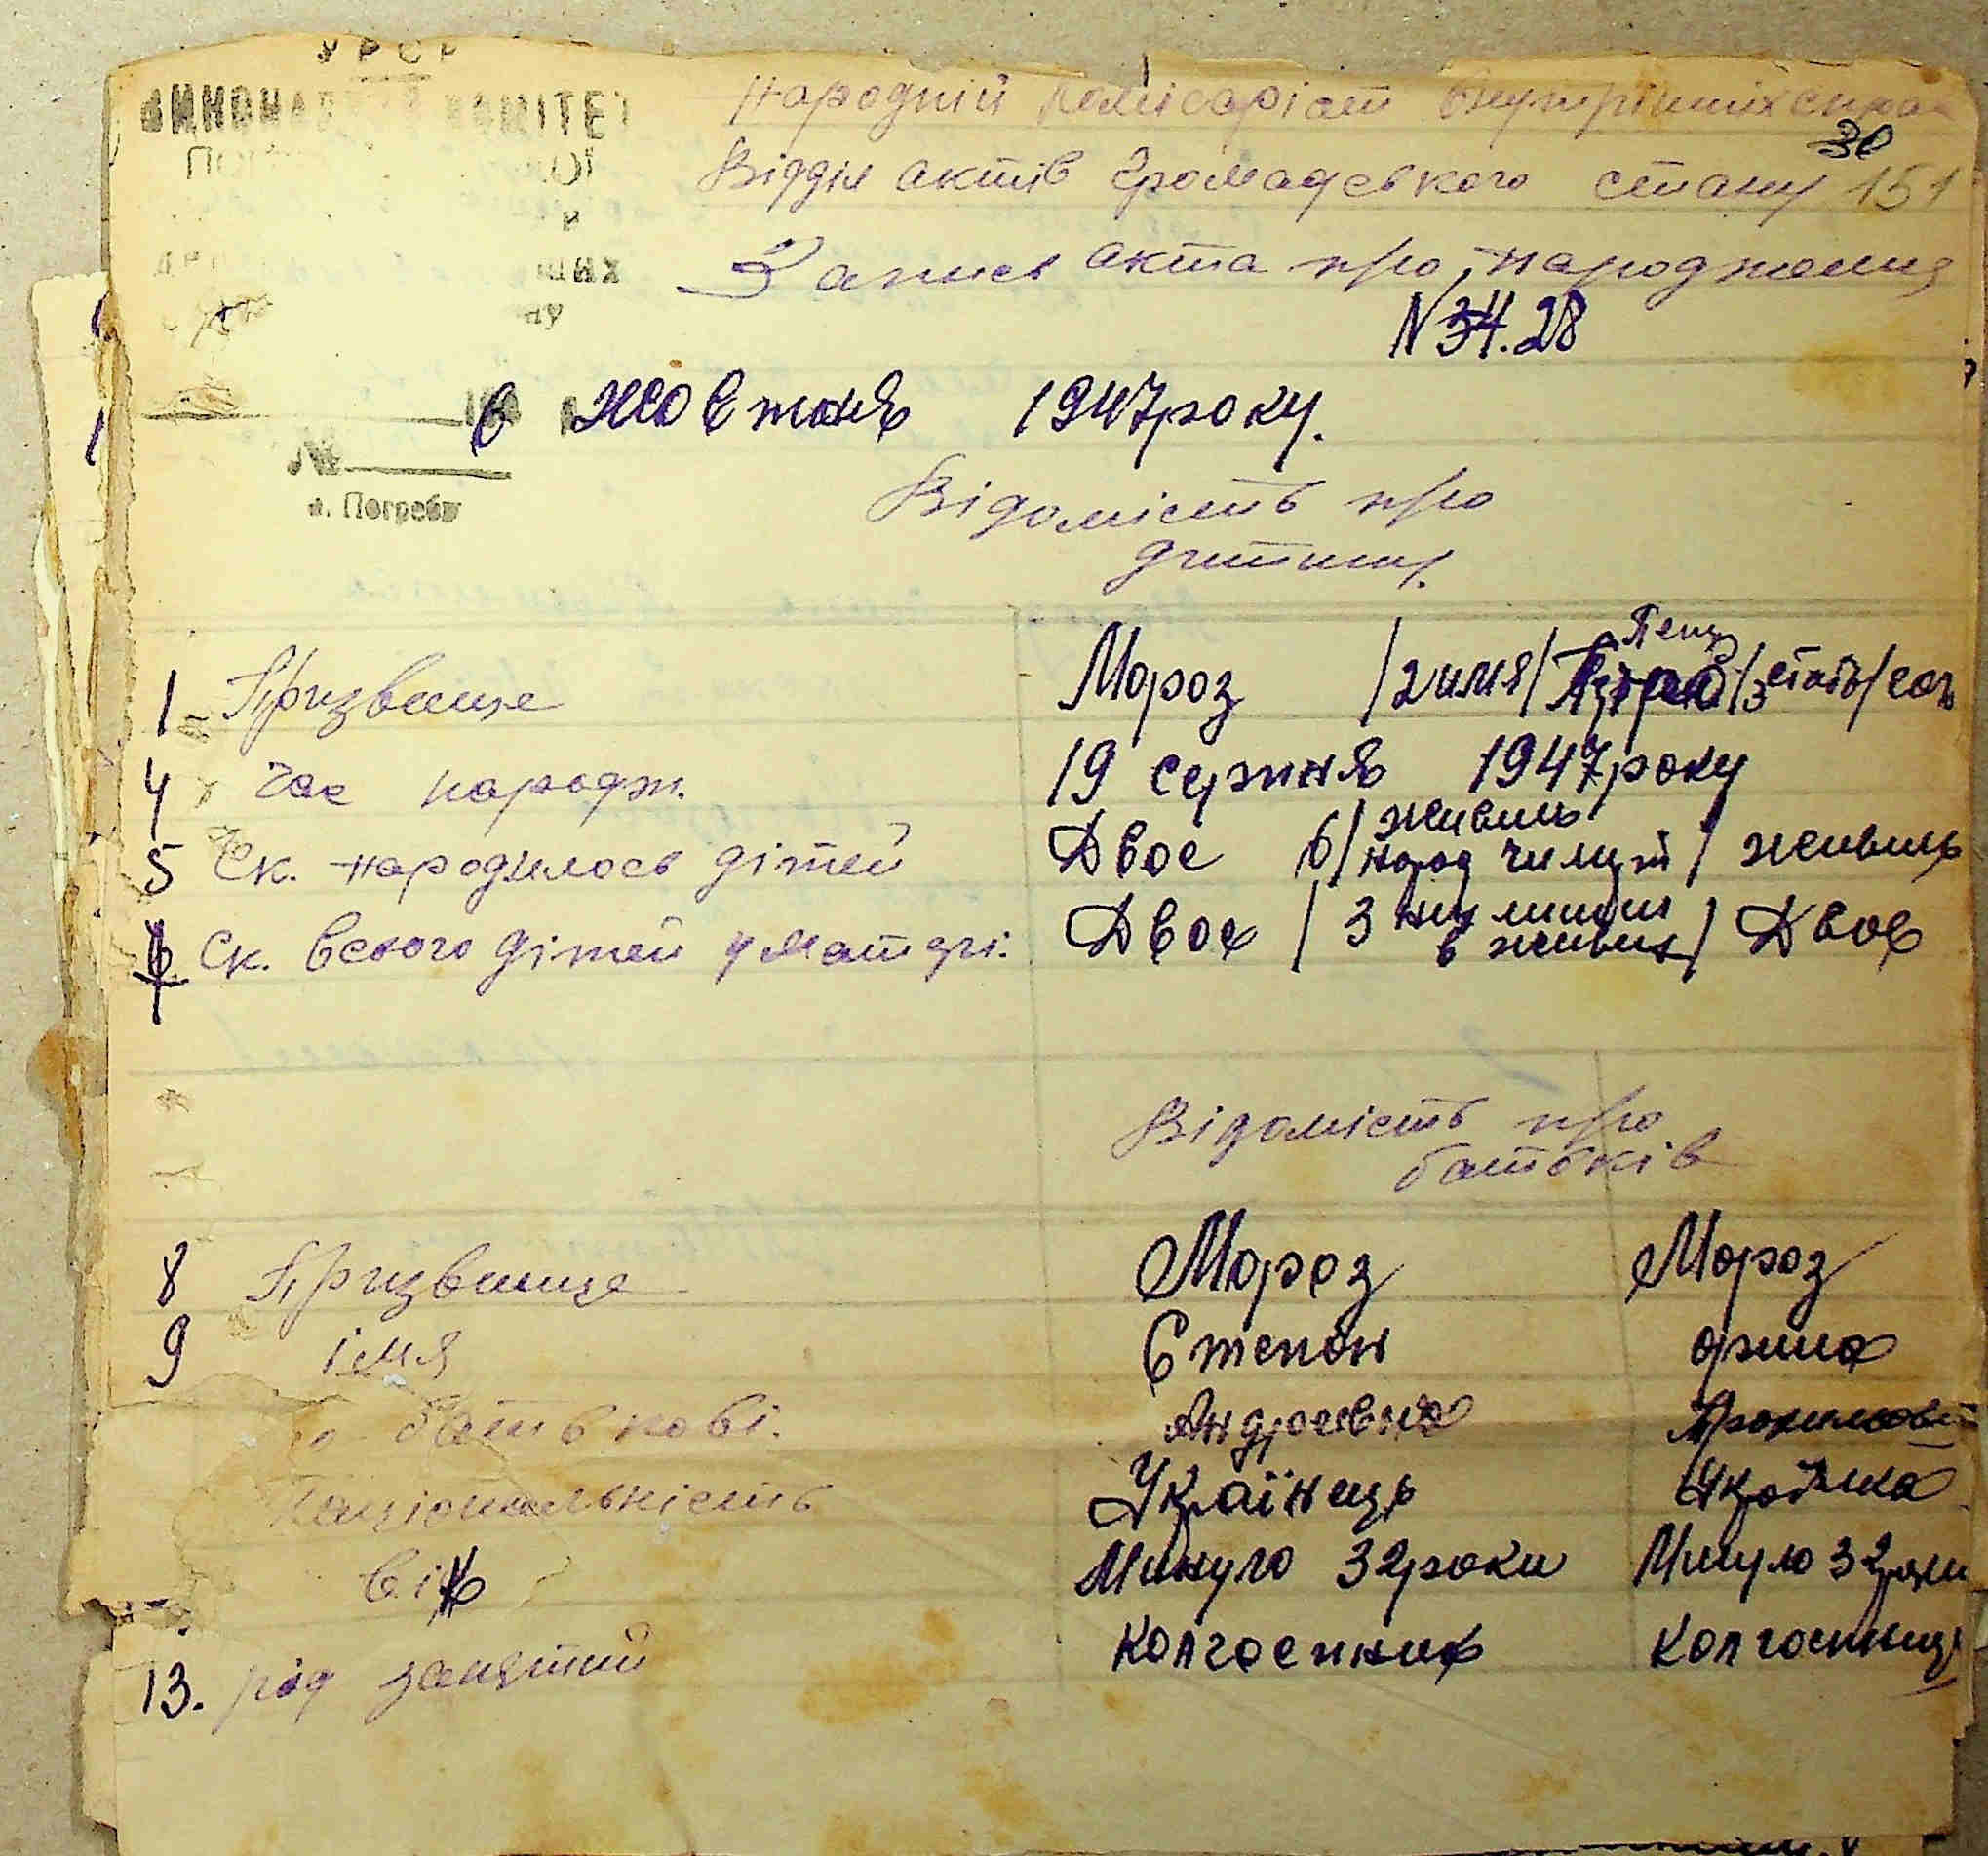 УРСР
ВИКОНАВЧИЙ КОМІТЕТ
Народній Комісаріат Внутрішніх справ
30
Відділ актів Громадського стану 151
Запись акта про народження
N 34.28
6 жовтня 1947 року.
№
с. Погреби
Відомість про
дитину.
1 Призвище Мороз / 2 имя / / 3 стать /
4 Час народж. 19 серпня 1947 року
5 Ск. народилось дітей Двое 6/ живиль народ чи / живиль
7 Ск. всього дітей у матері. Двое / З них в живих / Двое
Відомість про
батьків
8 Призвище Мороз Мороз
9 імя Степан орина
по батькові.
Національність Українець Українка
вік Минуло 32 роки Минуло 32 роки
13. рід занятий колгоспник колгоспниця